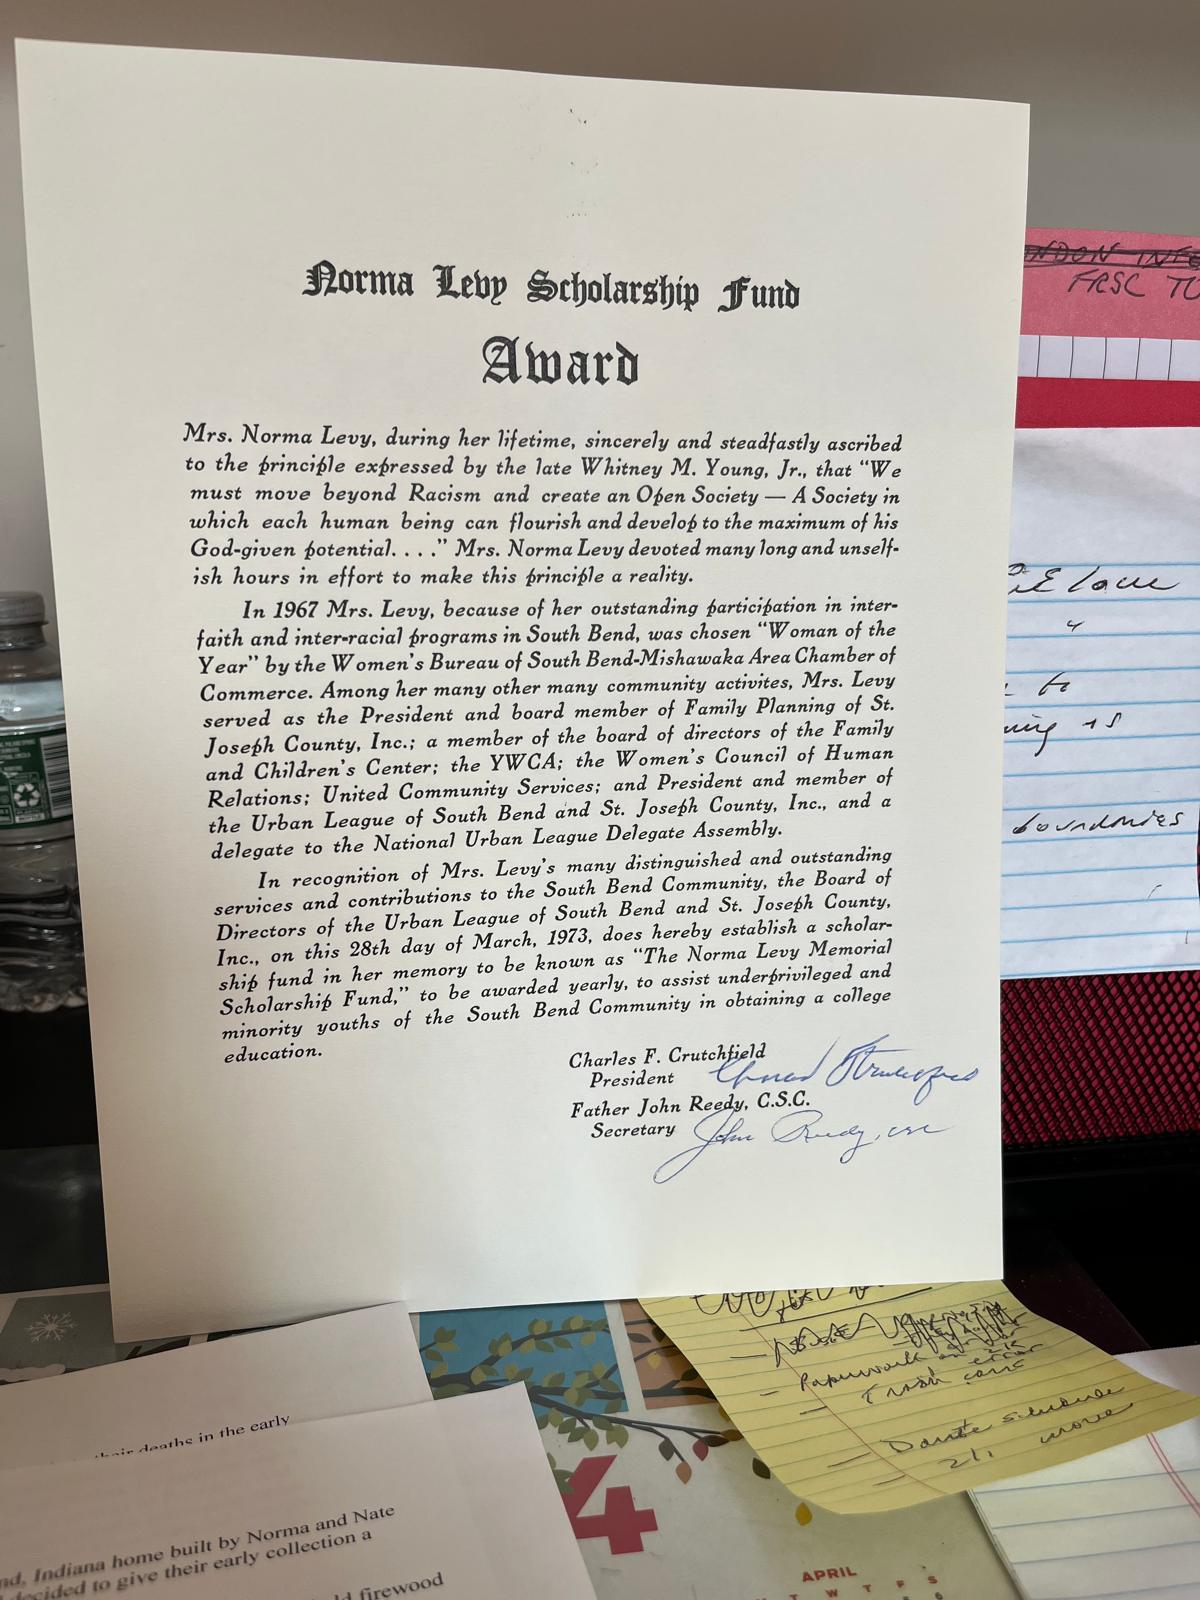 Norma Levy Scholarship Fund
Award
Mrs. Norma Levy, during her lifetime, sincerely and steadfastly ascribed
to the principle expressed by the late Whitney M. Young, Jr., that “We
must move beyond Racism and create an Open Society — A Society in
which each human being can flourish and develop to the maximum of his
God-given potential. . . .” Mrs. Norma Levy devoted many long and unself-
ish hours in effort to make this principle a reality.
In 1967 Mrs. Levy, because of her outstanding participation in inter-
faith and inter-racial programs in South Bend, was chosen “Woman of the
Year” by the Women’s Bureau of South Bend-Mishawaka Area Chamber of
Commerce. Among her many other many community activites, Mrs. Levy
served as the President and board member of Family Planning of St.
Joseph County, Inc.; a member of the board of directors of the Family
and Children’s Center; the YWCA; the Women’s Council of Human
Relations; United Community Services; and President and member of
the Urban League of South Bend and St. Joseph County, Inc., and a
delegate to the National Urban League Delegate Assembly.
In recognition of Mrs. Levy’s many distinguished and outstanding
services and contributions to the South Bend Community, the Board of
Directors of the Urban League of South Bend and St. Joseph County,
Inc., on this 28th day of March, 1973, does hereby establish a scholar-
ship fund in her memory to be known as “The Norma Levy Memorial
Scholarship Fund,” to be awarded yearly, to assist underprivileged and
minority youths of the South Bend Community in obtaining a college
education.
Charles F. Crutchfield
President
Father John Reedy, C.S.C.
Secretary John Reedy, csc
FRSC
boundries
Paperwork
schedule
2/1
their deaths in the early
Indiana home built by Norma and Nate
decided to give their early collection a
firewood
4
APRIL
T W T F S